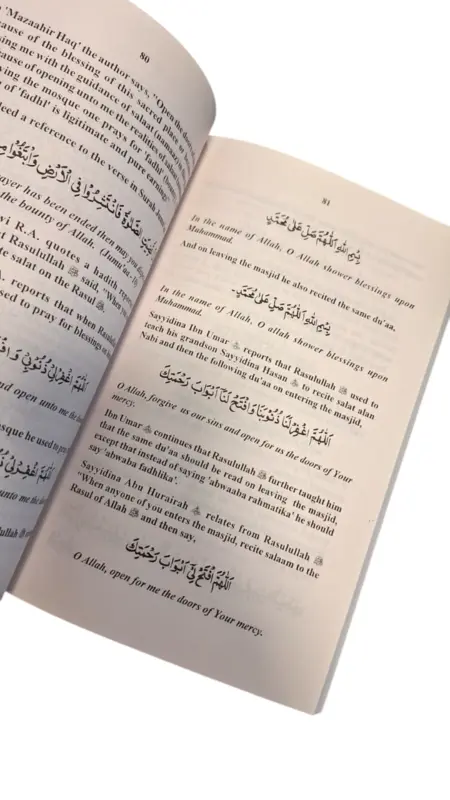 80
'Mazaahir Haq' the author says, "Open the
cause of the blessing of this sacred place or
sing me with the guidance of salaat (namaaz)
ause of opening unto me the realities of
ving the mosque one prays for 'fadhl'
g of 'fadhl' is legitimate and pure earning"
deed a reference to the verse in Surah
الصَّلٰوةُ فَانْتَشِرُوْا فِي الْاَرْضِ وَابْتَغُوْا
ayer has been ended then may you
the bounty of Allah. (Jumu'aa -10)
vi R.A. quotes a hadith
that Rasulullah ﷺ said, "
te salat on the Rasul ﷺ.
. reports that when Rasulullah
sed to pray for blessings on
اَللّٰهُمَّ اغْفِرْلِيْ ذُنُوْبِيْ وَافْتَحْ
and open unto me the
sque he used to
اَللّٰهُمَّ اغْفِرْلِيْ
unto me the
ullah ﷺ
81
بِسْمِ اللهِ اَللّٰهُمَّ صَلِّ عَلٰى مُحَمَّدٍ-
In the name of Allah, O Allah shower blessings upon
Muhammad.
And on leaving the masjid he also recited the same du'aa.
بِسْمِ اللهِ اَللّٰهُمَّ صَلِّ عَلٰى مُحَمَّدٍ-
In the name of Allah, O allah shower blessings upon
Muhammad.
Sayyidina Ibn Umar reports that Rasulullah ﷺ used to
teach his grandson Sayyidina Hasan to recite salat alan
Nabi and then the following du'aa on entering the masjid,
اَللّٰهُمَّ اغْفِرْلَنَا ذُنُوْبَنَا وَافْتَحْ لَنَا اَبْوَابَ رَحْمَتِكَ
O Allah, forgive us our sins and open for us the doors of Your
mercy.
Ibn Umar continues that Rasulullah ﷺ further taught him
that the same du'aa should be read on leaving the masjid,
except that instead of saying 'abwaaba rahmatika' he should
say 'abwaba fadhlika'.
Sayyidina Abu Hurairah relates from Rasulullah ﷺ
"When anyone of you enters the masjid, recite salaam to the
Rasul of Allah ﷺ and then say,
اَللّٰهُمَّ افْتَحْ لِيْ اَبْوَابَ رَحْمَتِكَ
O Allah, open for me the doors of Your mercy.